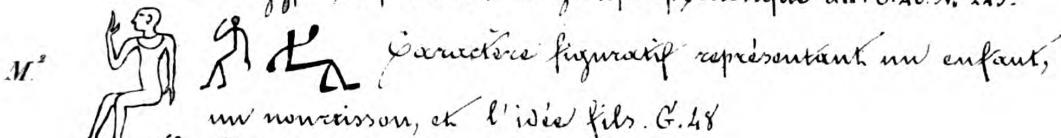 M.² Caractère figuratif représentant un enfant,
un nourrisson, et l'idée fils. G. 48